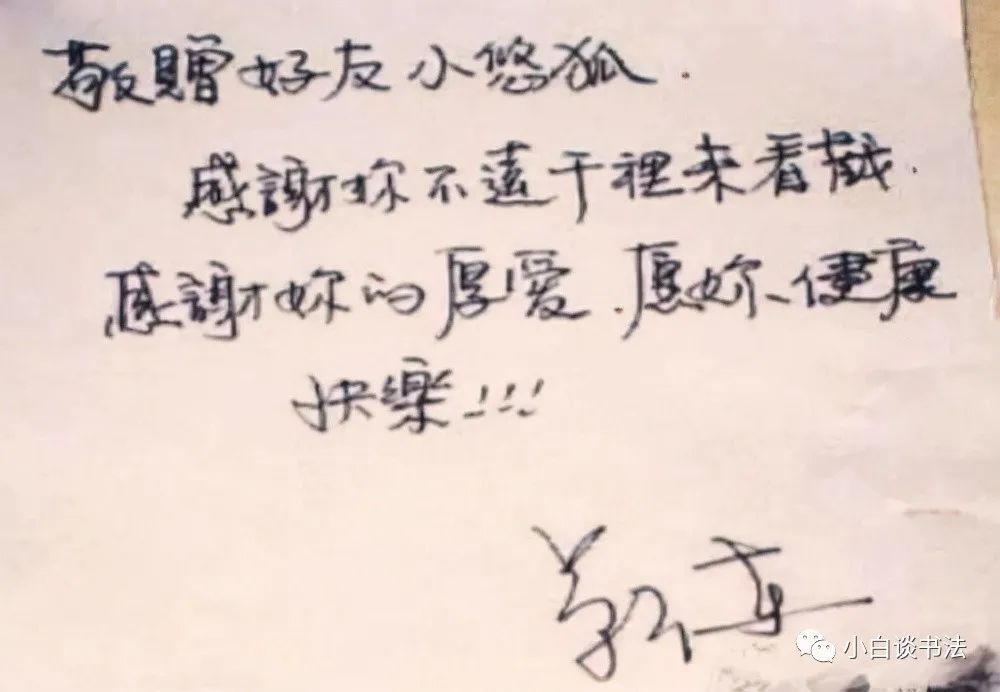 敬贈好友小悠狐.
感謝妳不遠千裡来看戲.
感謝妳的厚爱.愿妳健康
快樂!!!
小白谈书法